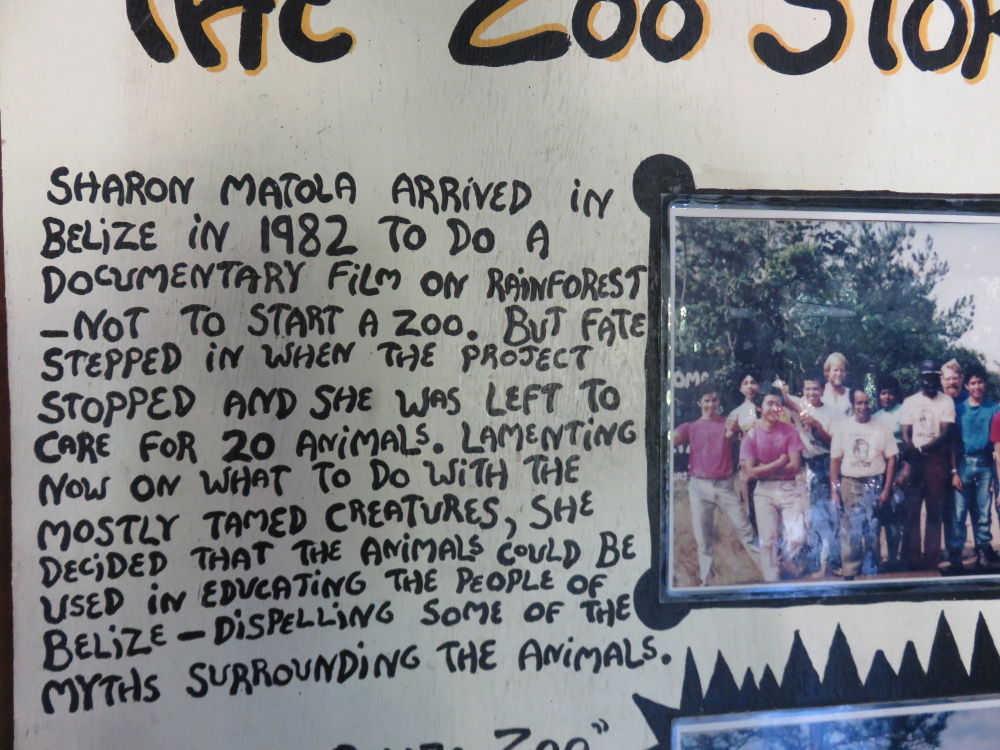 THE ZOO STOR
SHARON MATOLA ARRIVED IN
BELIZE IN 1982 TO DO A
DOCUMENTARY FILM ON RAINFOREST
—NOT TO START A ZOO. BUT FATE
STEPPED IN WHEN THE PROJECT
STOPPED AND SHE WAS LEFT TO
CARE FOR 20 ANIMALS. LAMENTING
NOW ON WHAT TO DO WITH THE
MOSTLY TAMED CREATURES, SHE
DECIDED THAT THE ANIMALS COULD BE
USED IN EDUCATING THE PEOPLE OF
BELIZE — DISPELLING SOME OF THE
MYTHS SURROUNDING THE ANIMALS.
ZOO"